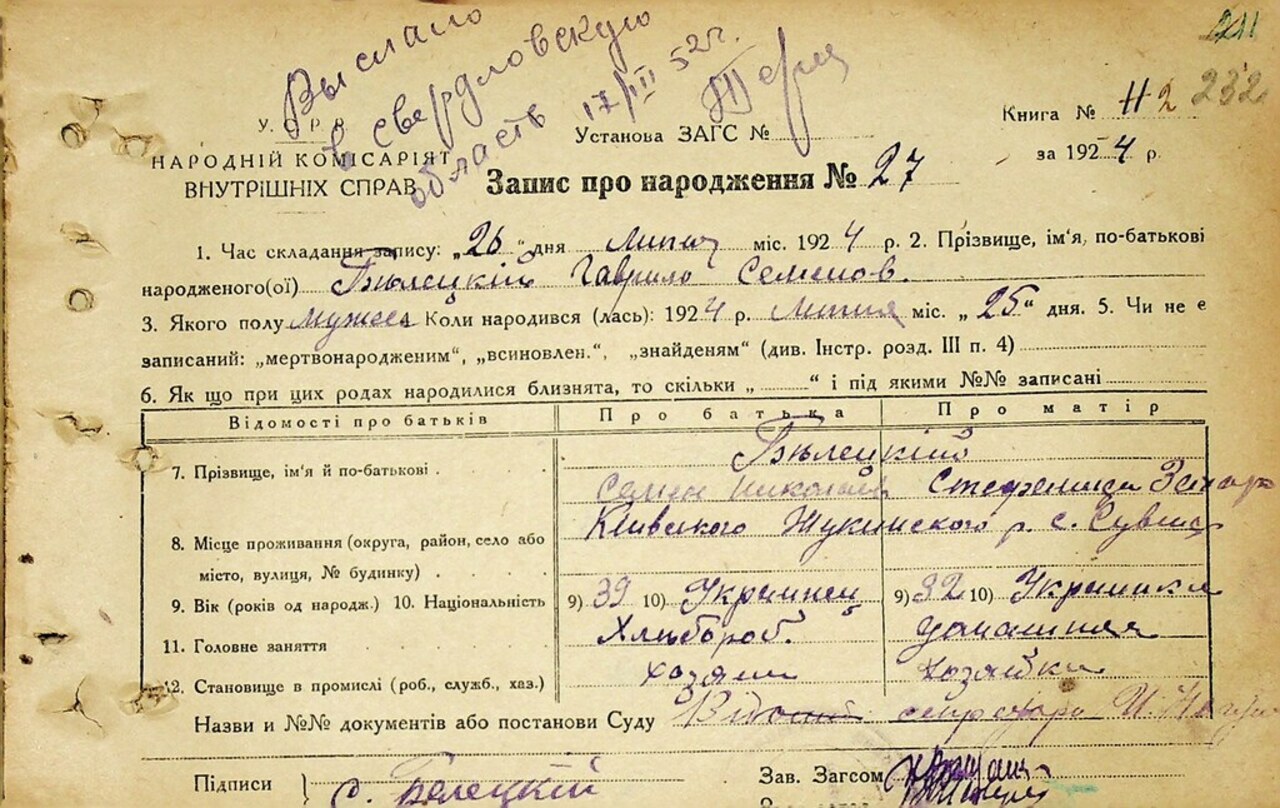 Выслано
в свердловскую
область 17/III 52 г.
211
232
У. С. Р. Р.
НАРОДНІЙ КОМІСАРІЯТ
ВНУТРІШНІХ СПРАВ
Установа ЗАГС №
Книга № 2
за 1924 р.
Запис про народження № 27
1. Час складання запису: „26“ дня Липня міс. 1924 р. 2. Прізвище, ім'я, по-батькові
народженого(ої) Бѣлецкій Гаврило Семенов.
3. Якого полу мужес 4. Коли народився (лась): 1924 р. Липня міс. „25“ дня. 5. Чи не є
записаний: „мертвонародженим“, „всиновлен.“, „знайденям“ (див. Інстр. розд. III п. 4)
6. Як що при цих родах народилися близнята, то скільки „ “ і під якими №№ записані
Відомості про батьків Про батька Про матір
Бѣлецкий
7. Прізвище, ім'я й по-батькові
Семен Николаев Стефанида Захар
Киівского Жукинского р. с.
8. Місце проживання (округа, район, село або
місто, вулиця, № будинку)
9. Вік (років од народж.) 10. Національність 9) 39 10) Украинец 9) 32 10) Украинка
11. Головне заняття Хлѣбороб. домашняя
12. Становище в промислі (роб., служб., хаз.) хозяин хозяйка
Назви и №№ документів або постанови Суду
Підписи С. Белецкий Зав. Загсом